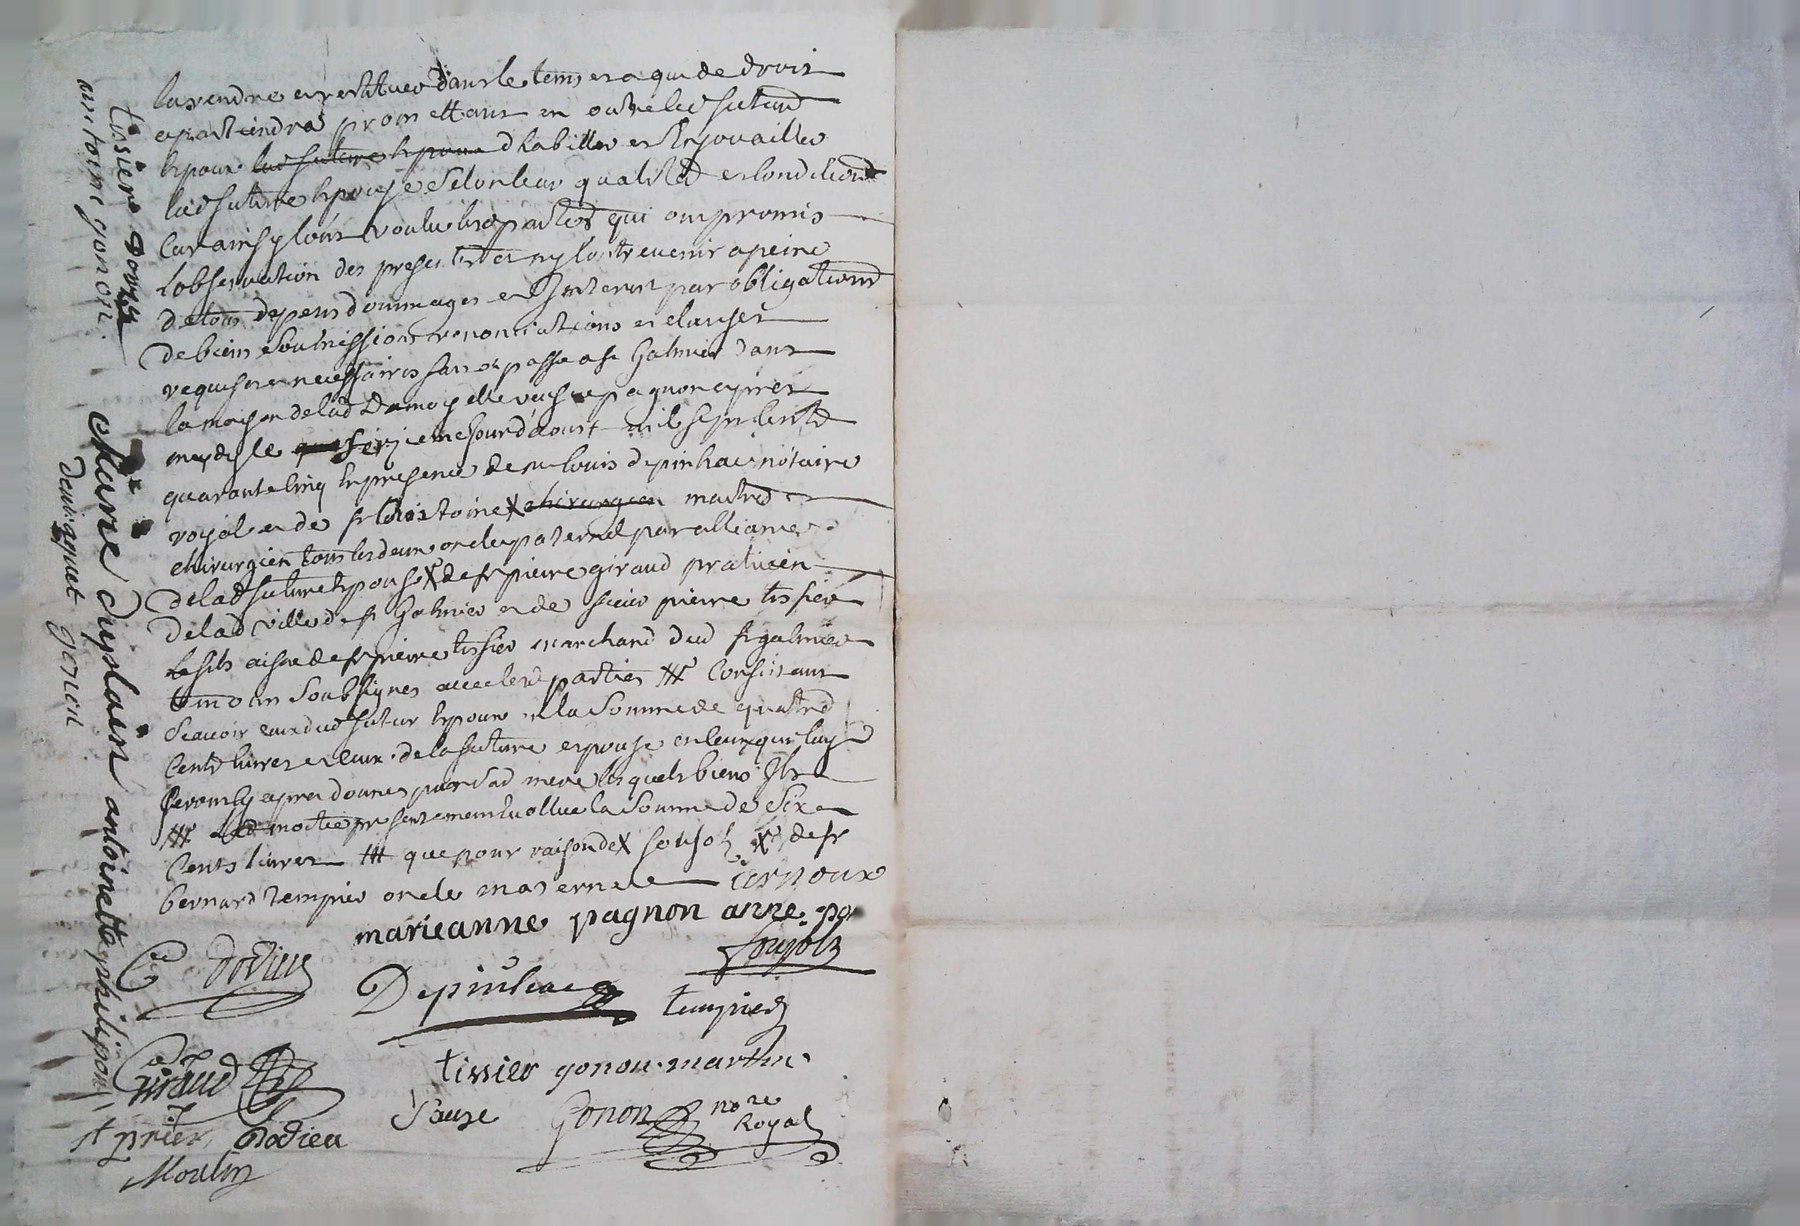 la rendre et restituer dans le tems et a qui de droit
apartiendra promettant en outre led futur
Epoux lad future Epouse d habiller et Enjouailler
lad future Epouse selon leur qualité et condition
Car ainsy lont voulu les parties qui ont promis
lobservation des presentes et ny contrevenir a peine
de tous depens dommages et Interest par obligations
de biens soumissions renonciations et clauses
requises et necessaires fait et passé a st Galmier dans
la maison de lad Damoiselle veuve pagnon apres
midy le seizieme jour daoust mil sept cent
quarante cinq En presence de me louis depinhac notaire
royal et de sr toine chirurgien maitre
chirurgien tous les deux oncles paternel par alliance
de lad future Epouse X de sr pierre giraud praticien
de lad ville de st Galmier et de sieur pierre tissier
le fils aisné de sr pierre tissier marchand dud st galmier
temoins soubsignes avec les parties Consistant
scavoir ceux dud futur Epoux en la somme de quatre
Cents livres et ceux de la future espouse en ceux qui luy
seront cy apres donnes par sad mere lesquels biens Ils
presentement evalluent la somme de six
Cents livres que pour raison de X soujols X de sr
bernard tempier oncle maternel Cernoux
marieanne pagnon anne
Dodieu soujols
Depinhac tempier
tissier gonon martin
Giraud
Gonon nore Royal
st prier Dodieu
Moulin
antoine gonon
claire duplain antoinette philipon
gonon